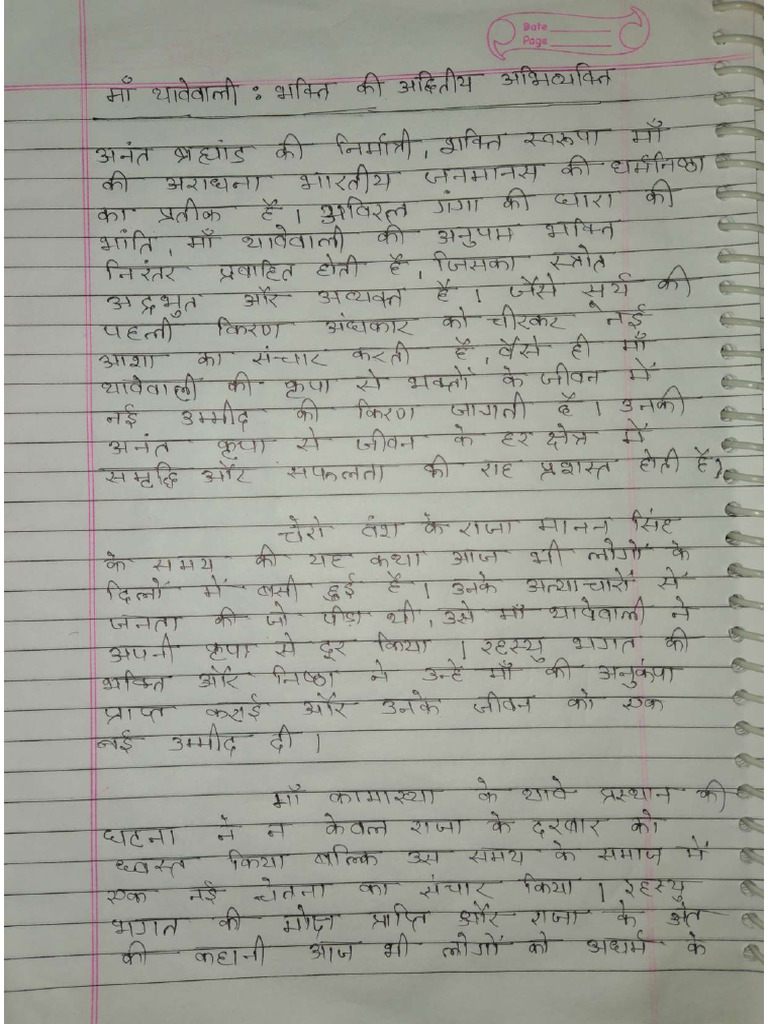 Date
Page
माँ थावेवाली : भक्ति की अद्वितीय अभिव्यक्ति
अनंत ब्रह्मांड की निर्मात्री, शक्ति स्वरूपा माँ
की अराधना भारतीय जनमानस की धर्मनिष्ठा
का प्रतीक है । अविरल गंगा की धारा की
भांति, माँ थावेवाली की अनुपम भक्ति
निरंतर प्रवाहित होती है, जिसका स्त्रोत
अद्भुत और अव्यक्त है । जैसे सूर्य की
पहली किरण अंधकार को चीरकर नई
आशा का संचार करती है, वैसे ही माँ
थावेवाली की कृपा से भक्तों के जीवन में
नई उम्मीद की किरण जागती है । उनकी
अनंत कृपा से जीवन के हर क्षेत्र में
समृद्धि और सफलता की राह प्रशस्त होती है।
चेरो वंश के राजा मानन सिंह
के समय की यह कथा आज भी लोगों के
दिलों में बसी हुई है । उनके अत्याचारों से
जनता की जो पीड़ा थी, उसे माँ थावेवाली ने
अपनी कृपा से दूर किया । रहस्यु भगत की
भक्ति और निष्ठा ने उन्हें माँ की अनुकंपा
प्राप्त कराई और उनके जीवन को एक
नई उम्मीद दी ।
माँ कामाख्या के थावे प्रस्थान की
घटना ने न केवल राजा के दरबार को
ध्वस्त किया बल्कि उस समय के समाज में
एक नई चेतना का संचार किया । रहस्यु
भगत की मोक्ष प्राप्ति और राजा के अंत
की कहानी आज भी लोगों को अधर्म के